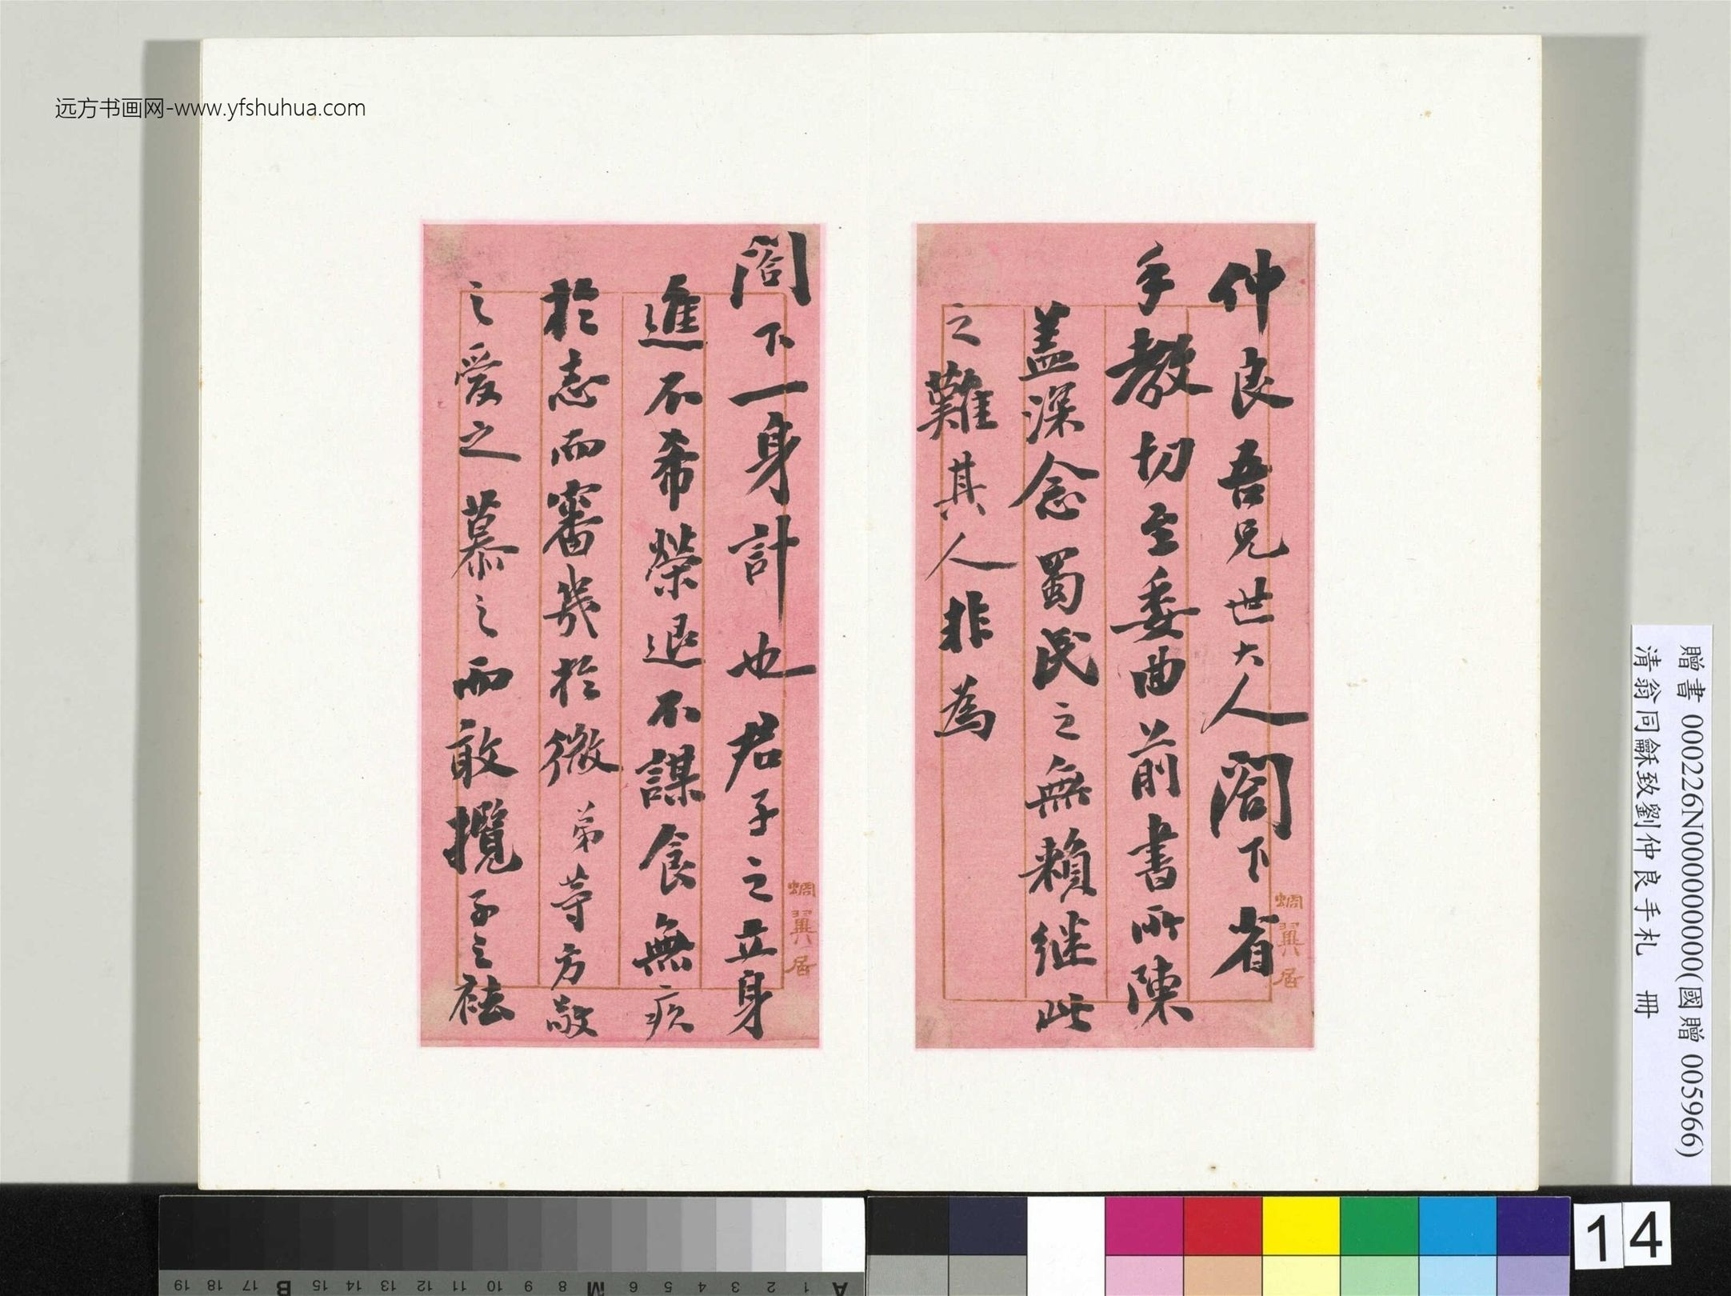 远方书画网-www.yfshuhua.com
仲良吾兄世大人閤下省
手教切至委曲前書所陳
蓋深念蜀民之無賴继此
之難其人非為
蜩翼居
閤下一身計也君子之立身
進不希榮退不謀食無疾
於志而審幾於微弟等方敬
之愛之慕之而敢攬子之袪
蜩翼居
贈書 000226N000000000(國贈 005966)
清翁同龢致劉仲良手札 冊
14
A 1 2 3 4 5 6 M 8 9 10 11 12 13 14 15 B 17 18 19